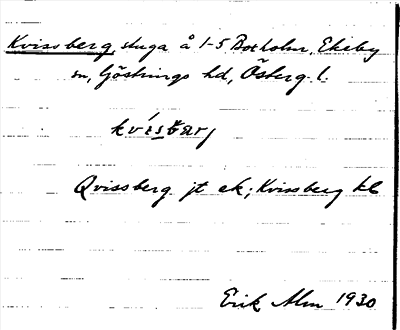 Kvissberg, stuga å 1-5 Boxholm, Ekeby
sn, Göstrings hd, Österg. l.
kvisbærj
Qvissberg jt ek; Kvissberg kb
Erik Alm 1930